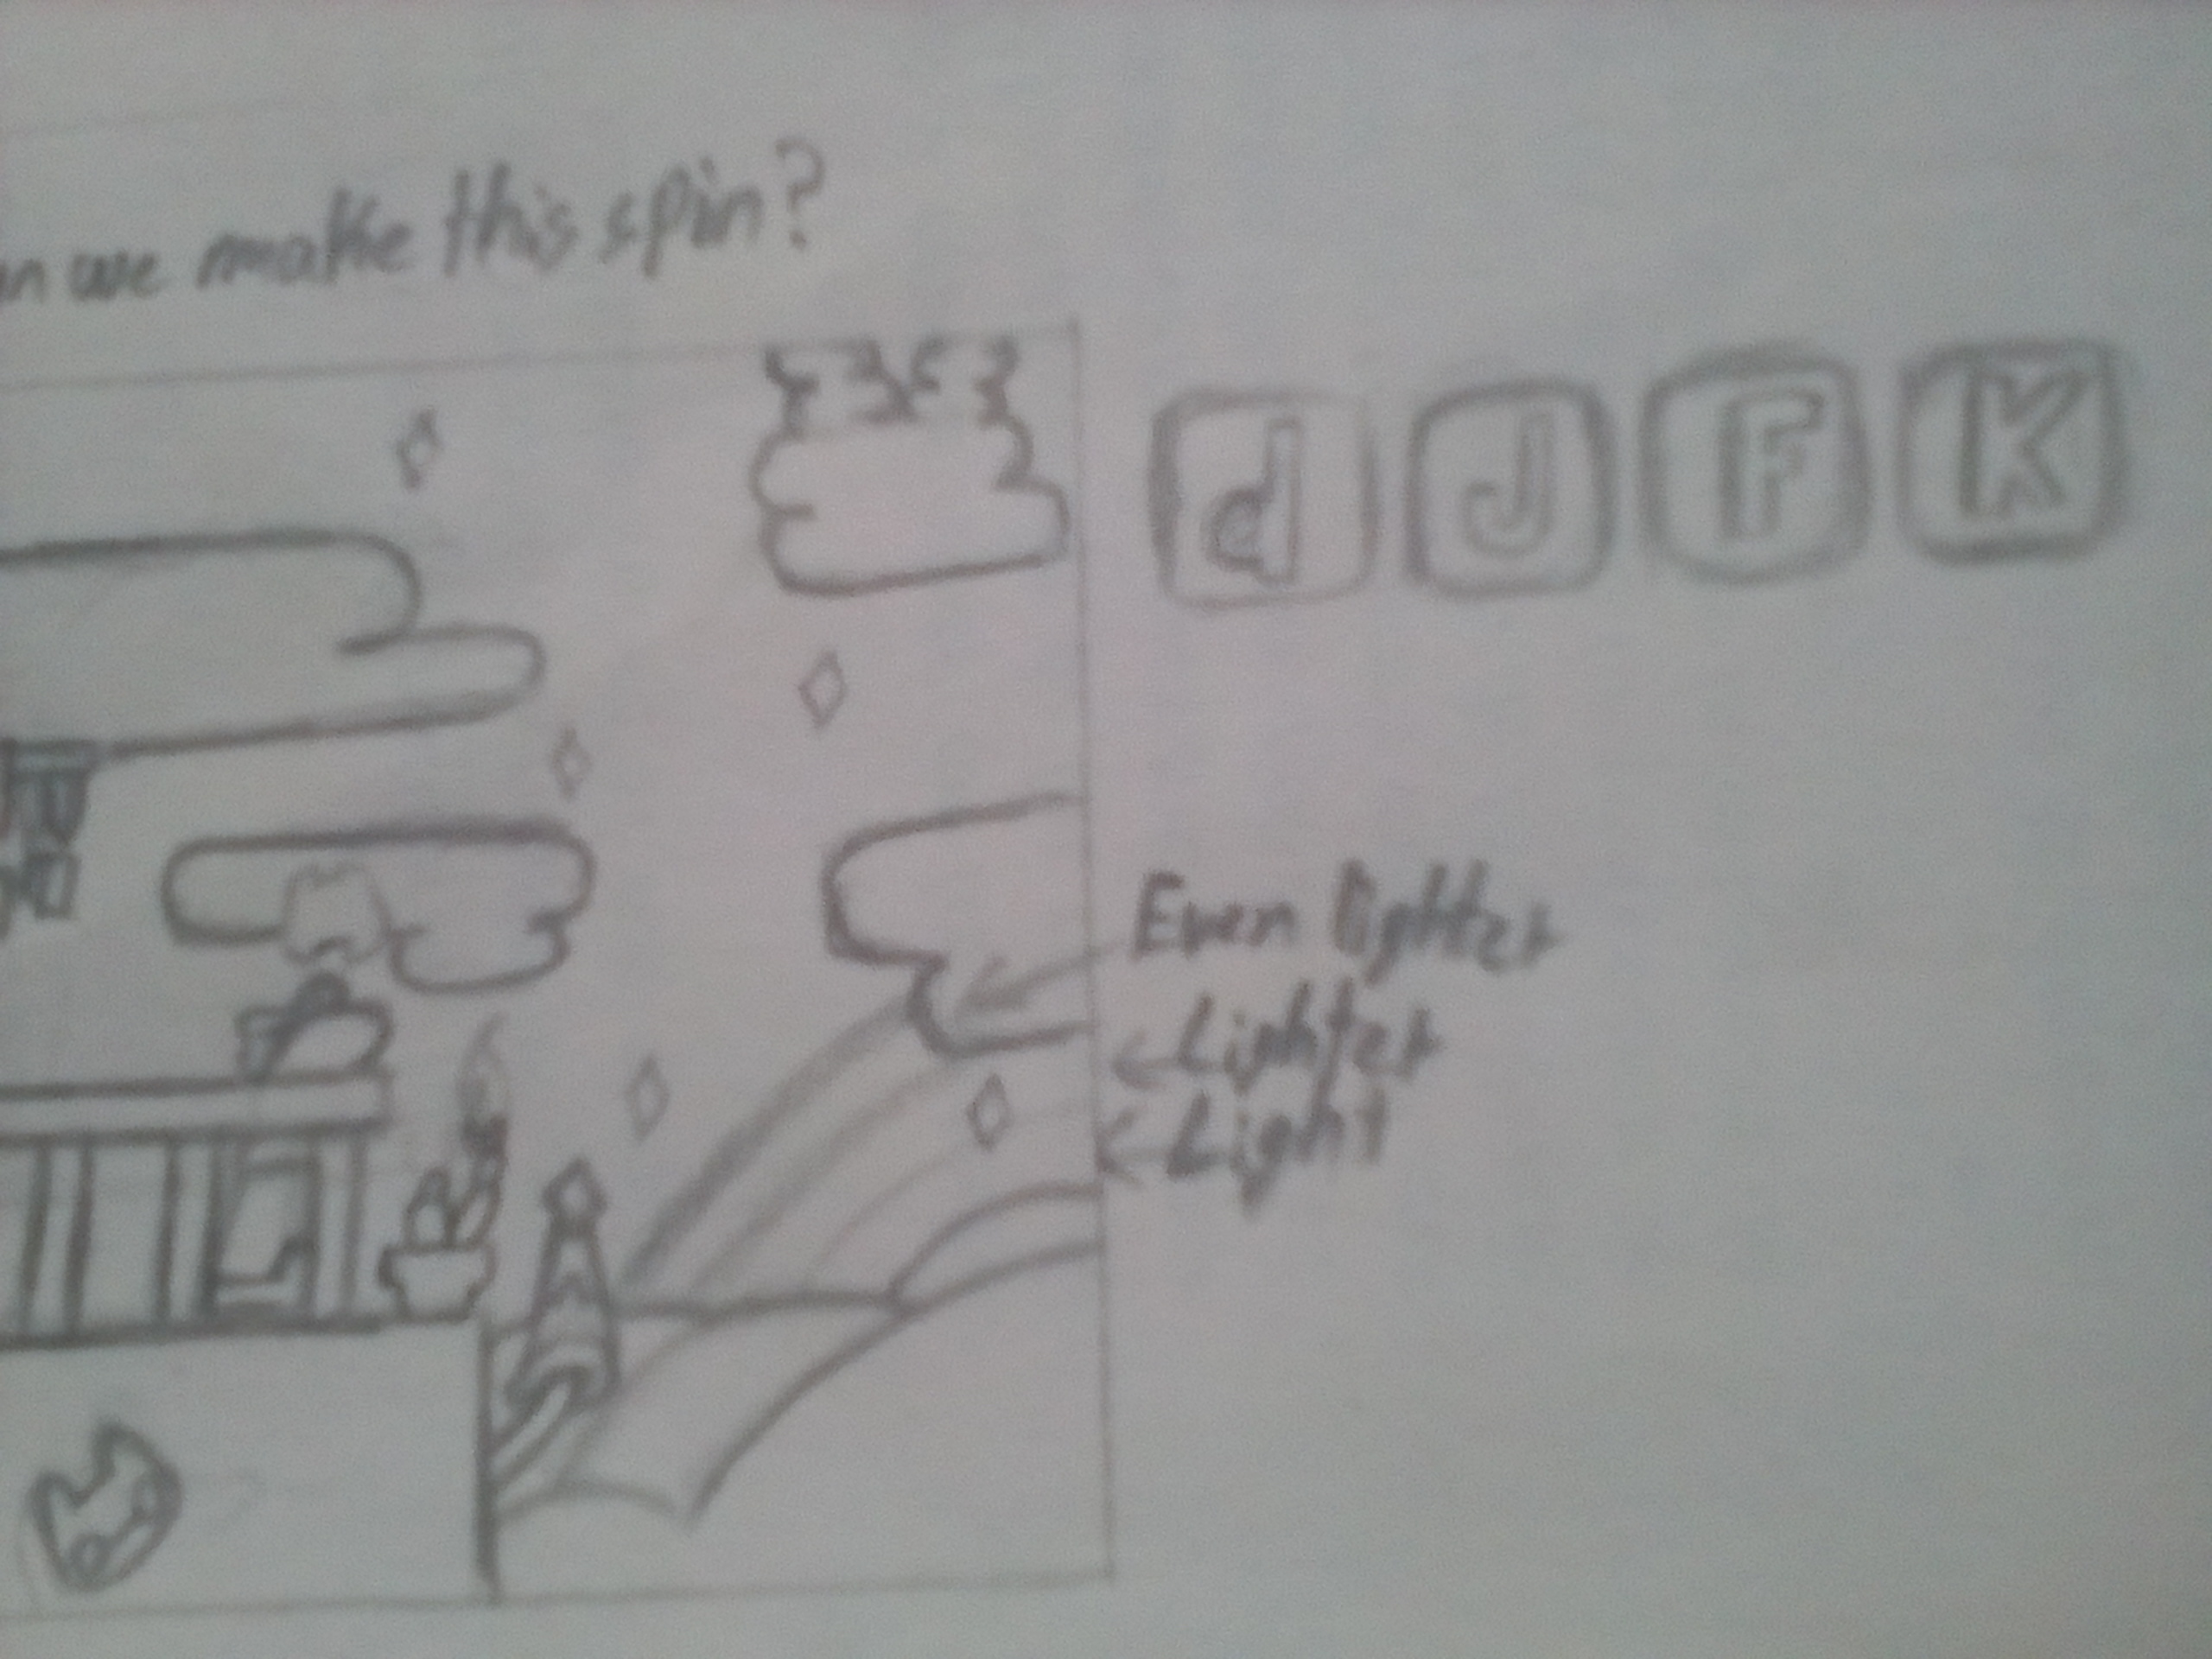 an we make this spin?
d J F K
Even lighter
Lighter
Light